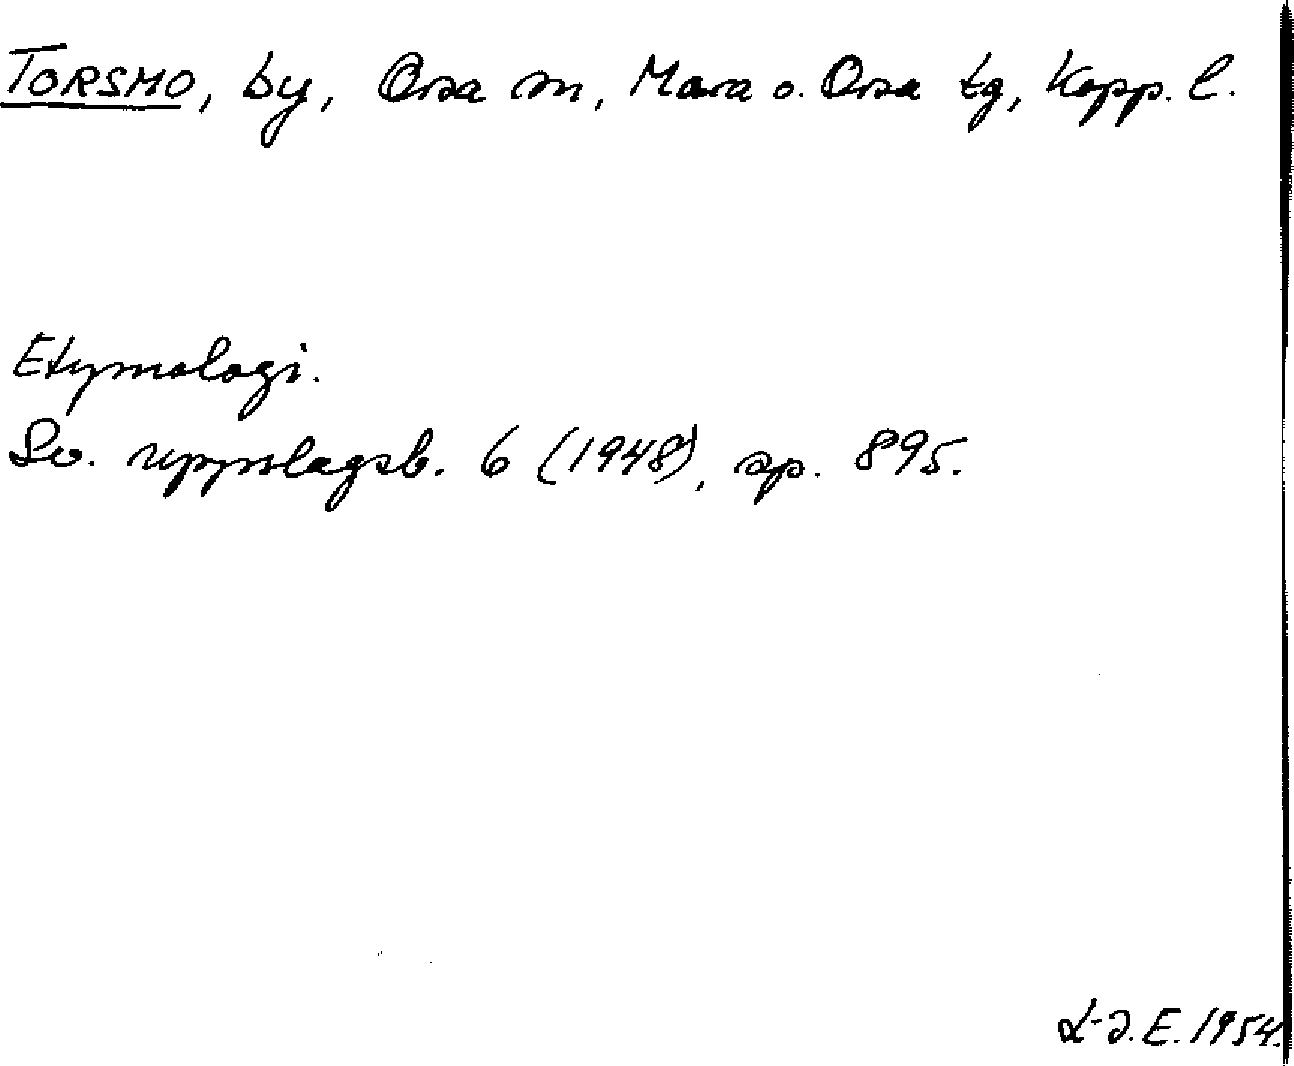 TORSMO, by, Orsa sn, Mora o. Orsa tg, Kopp. l.
Etymologi.
Sv. uppslagsb. 6 (1948), sp. 895.
L-J. E. 1954.